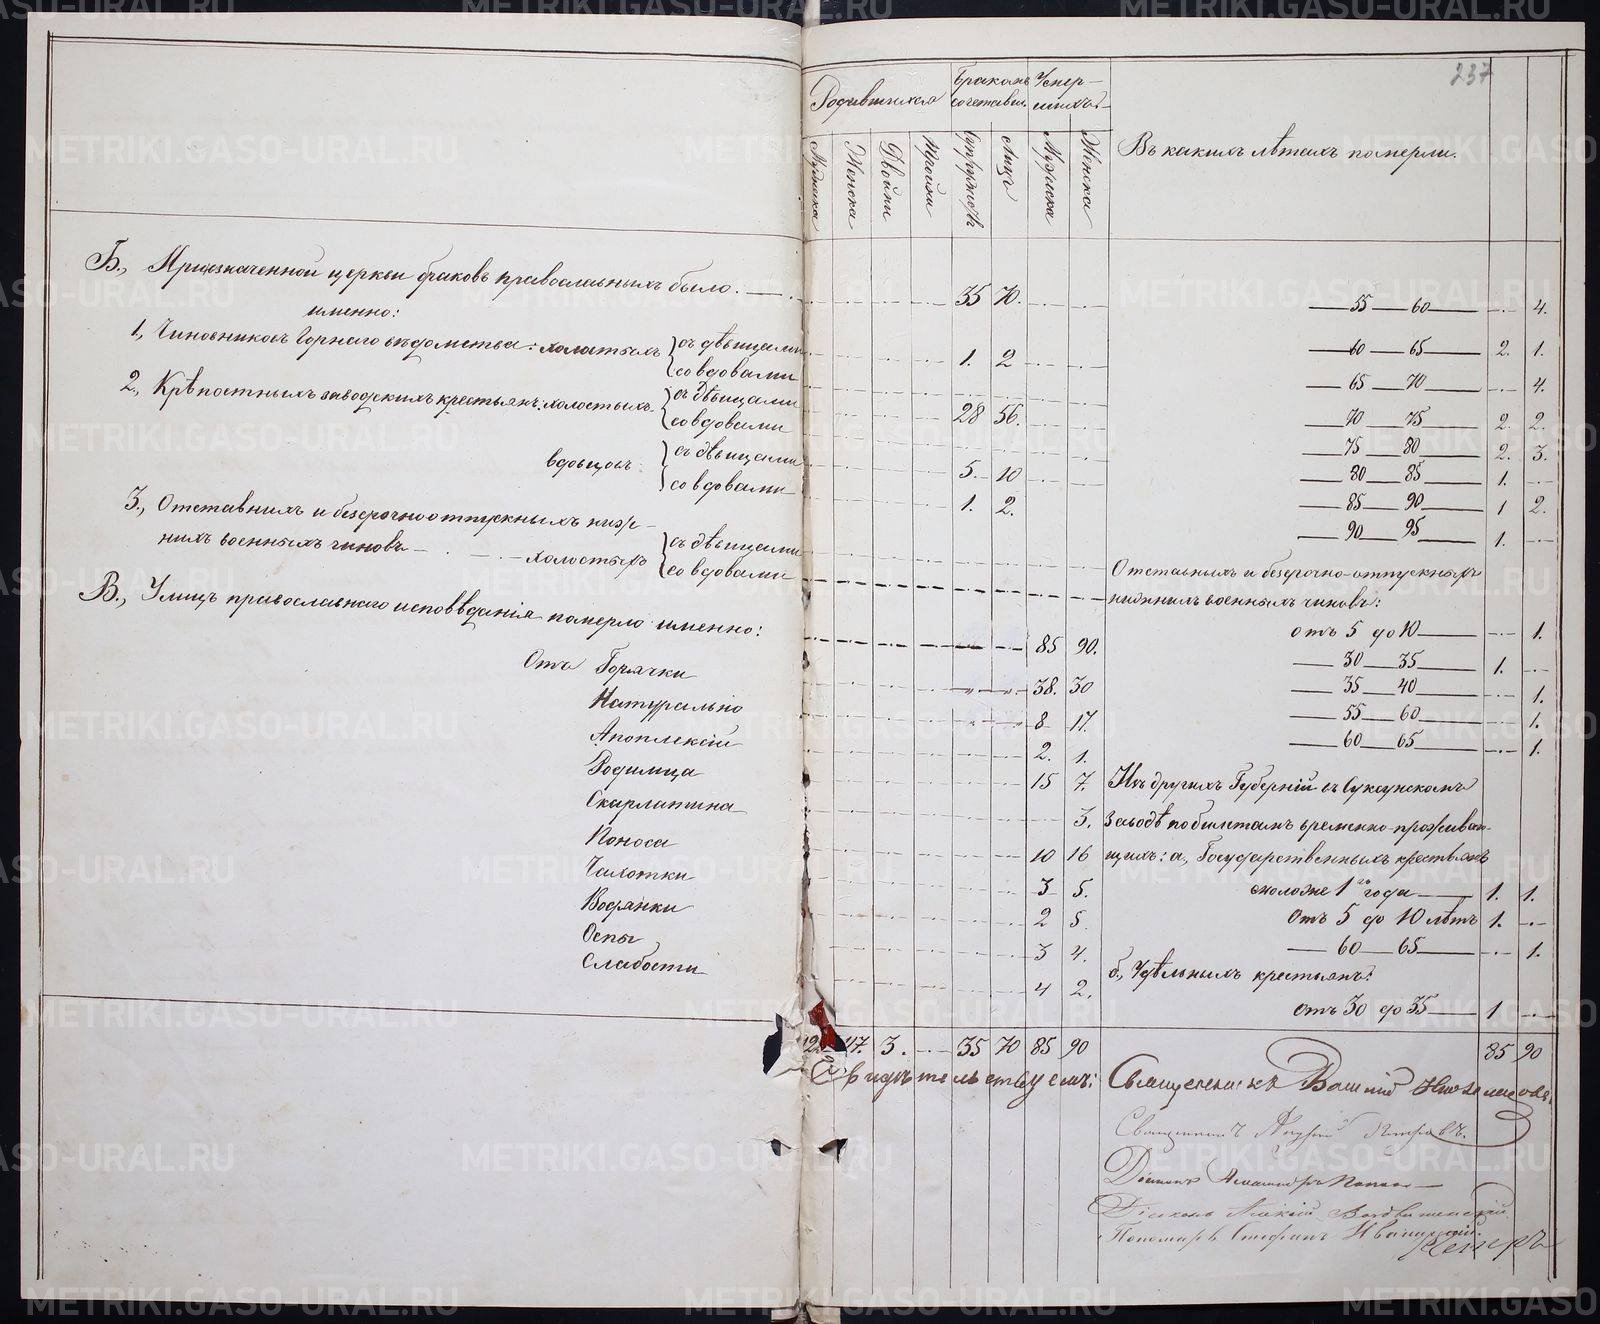 Б., При означенной церкви браковъ православныхъ было.
именно:
1., Чиновниковъ Горнаго вѣдомства: холостыхъ съ дѣвицами
со вдовами
2., Крѣпостныхъ заводскихъ крестьянъ: холостыхъ съ дѣвицами
со вдовами
вдовцовъ съ дѣвицами
со вдовами
3., Отставныхъ и безсрочноотпускныхъ ниж-
нихъ военныхъ чиновъ холостыхъ съ дѣвицами
со вдовами
В., У лицъ православнаго исповѣданія померло именно:
Отъ Горячки
Натурально
Апоплексіи
Родимца
Скарлатина
Поноса
Чахотки
Водянки
Оспы
Слабости
237
Родившихся
Бракомъ сочетавш.
Умер-
шихъ
Мужеска
Женска
Двойни
Тройни
Супружествъ
Лицъ
Мужеска
Женска
Въ какихъ лѣтахъ померли.
35 70.
1. 2
28 56.
5. 10
1. 2.
85 90.
38. 30
8 17.
2. 1.
15 7.
3.
10 16
3 5.
2 5
3 4.
4 2.
47. 3. 35 70 85 90
55 60 4.
60 65 2. 1.
65 70 4.
70 75 2. 2.
75 80 2. 3.
80 85 1.
85 90 1 2.
90 95 1.
Отставныхъ и безсрочно-отпускныхъ
нижнихъ военныхъ чиновъ:
отъ 5 до 10 1.
30 35 1.
35 40 1.
55 60 1.
60 65 1.
Изъ другихъ Губерній въ Суксунскомъ
заводѣ по билетамъ временно-прожива-
щихъ: а, Государственныхъ крестьянъ
моложе 1го года 1. 1.
отъ 5 до 10 лѣтъ 1.
60 65 1.
б, Удѣльныхъ крестьянъ:
отъ 30 до 35 1
85 90
Свидѣтельствуемъ: Священникъ
Священникъ Андрей
Діаконъ Александръ Поповъ
Діаконъ
Пономарь Стефанъ
METRIKI.GASO-URAL.RU